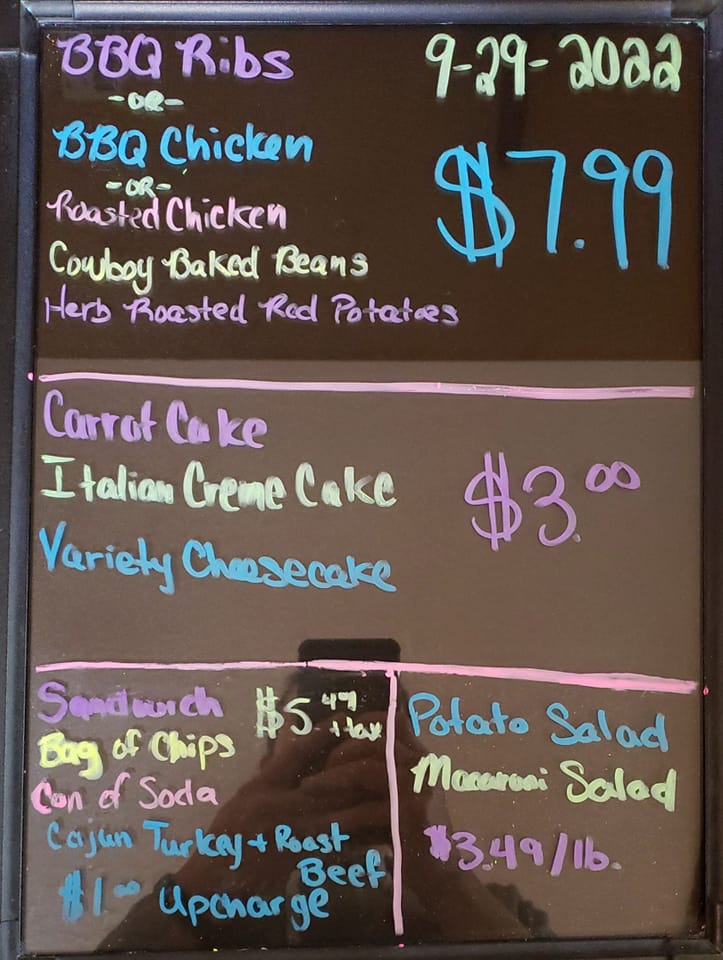 BBQ Ribs
9-29-2022
-OR-
BBQ Chicken
$7.99
-OR-
Roasted Chicken
Cowboy Baked Beans
Herb Roasted Red Potatoes
Carrot Cake
Italian Creme Cake
$3.00
Variety Cheesecake
Sandwich $5.49 + tax
Bag of Chips
Can of Soda
Cajun Turkey + Roast
Beef
$1.00 Upcharge
Potato Salad
Macaroni Salad
$3.49/lb.